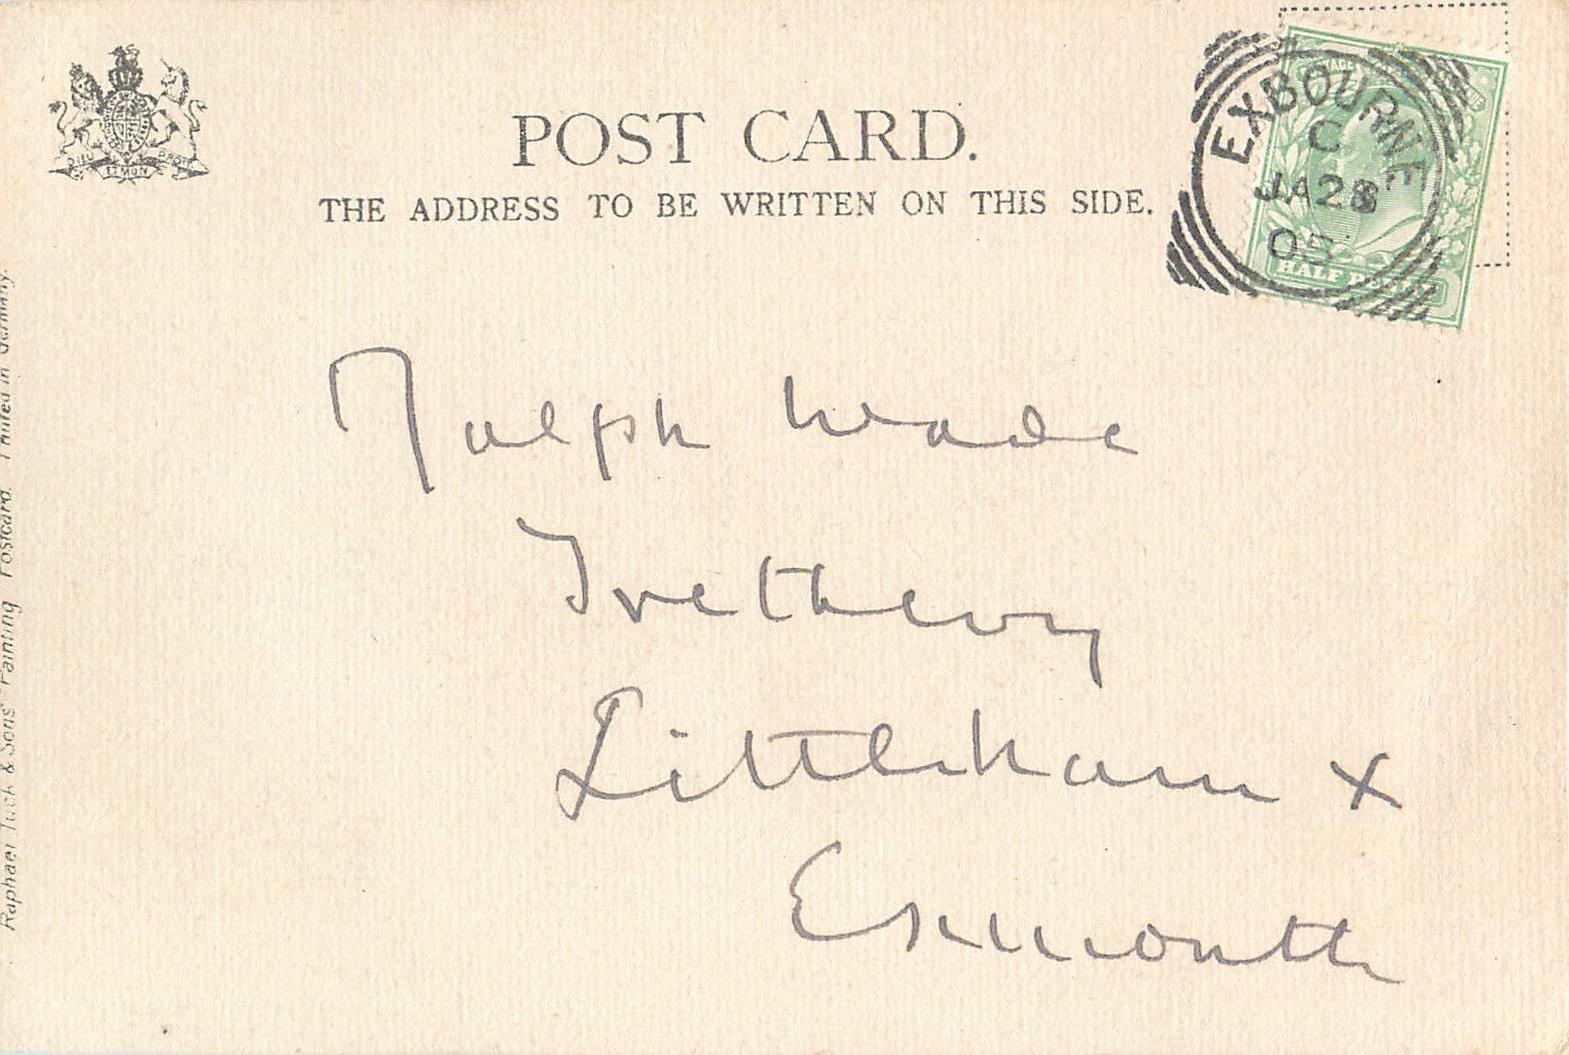 POST CARD.
THE ADDRESS TO BE WRITTEN ON THIS SIDE.
DIEU ET MON DROIT
EXBOURNE
C
JA 28
05
HALF PENNY
Ralph Wade
Trethevy
Littleham X
Exmouth
Raphael Tuck & Sons' Painting Postcard. Printed in Germany.